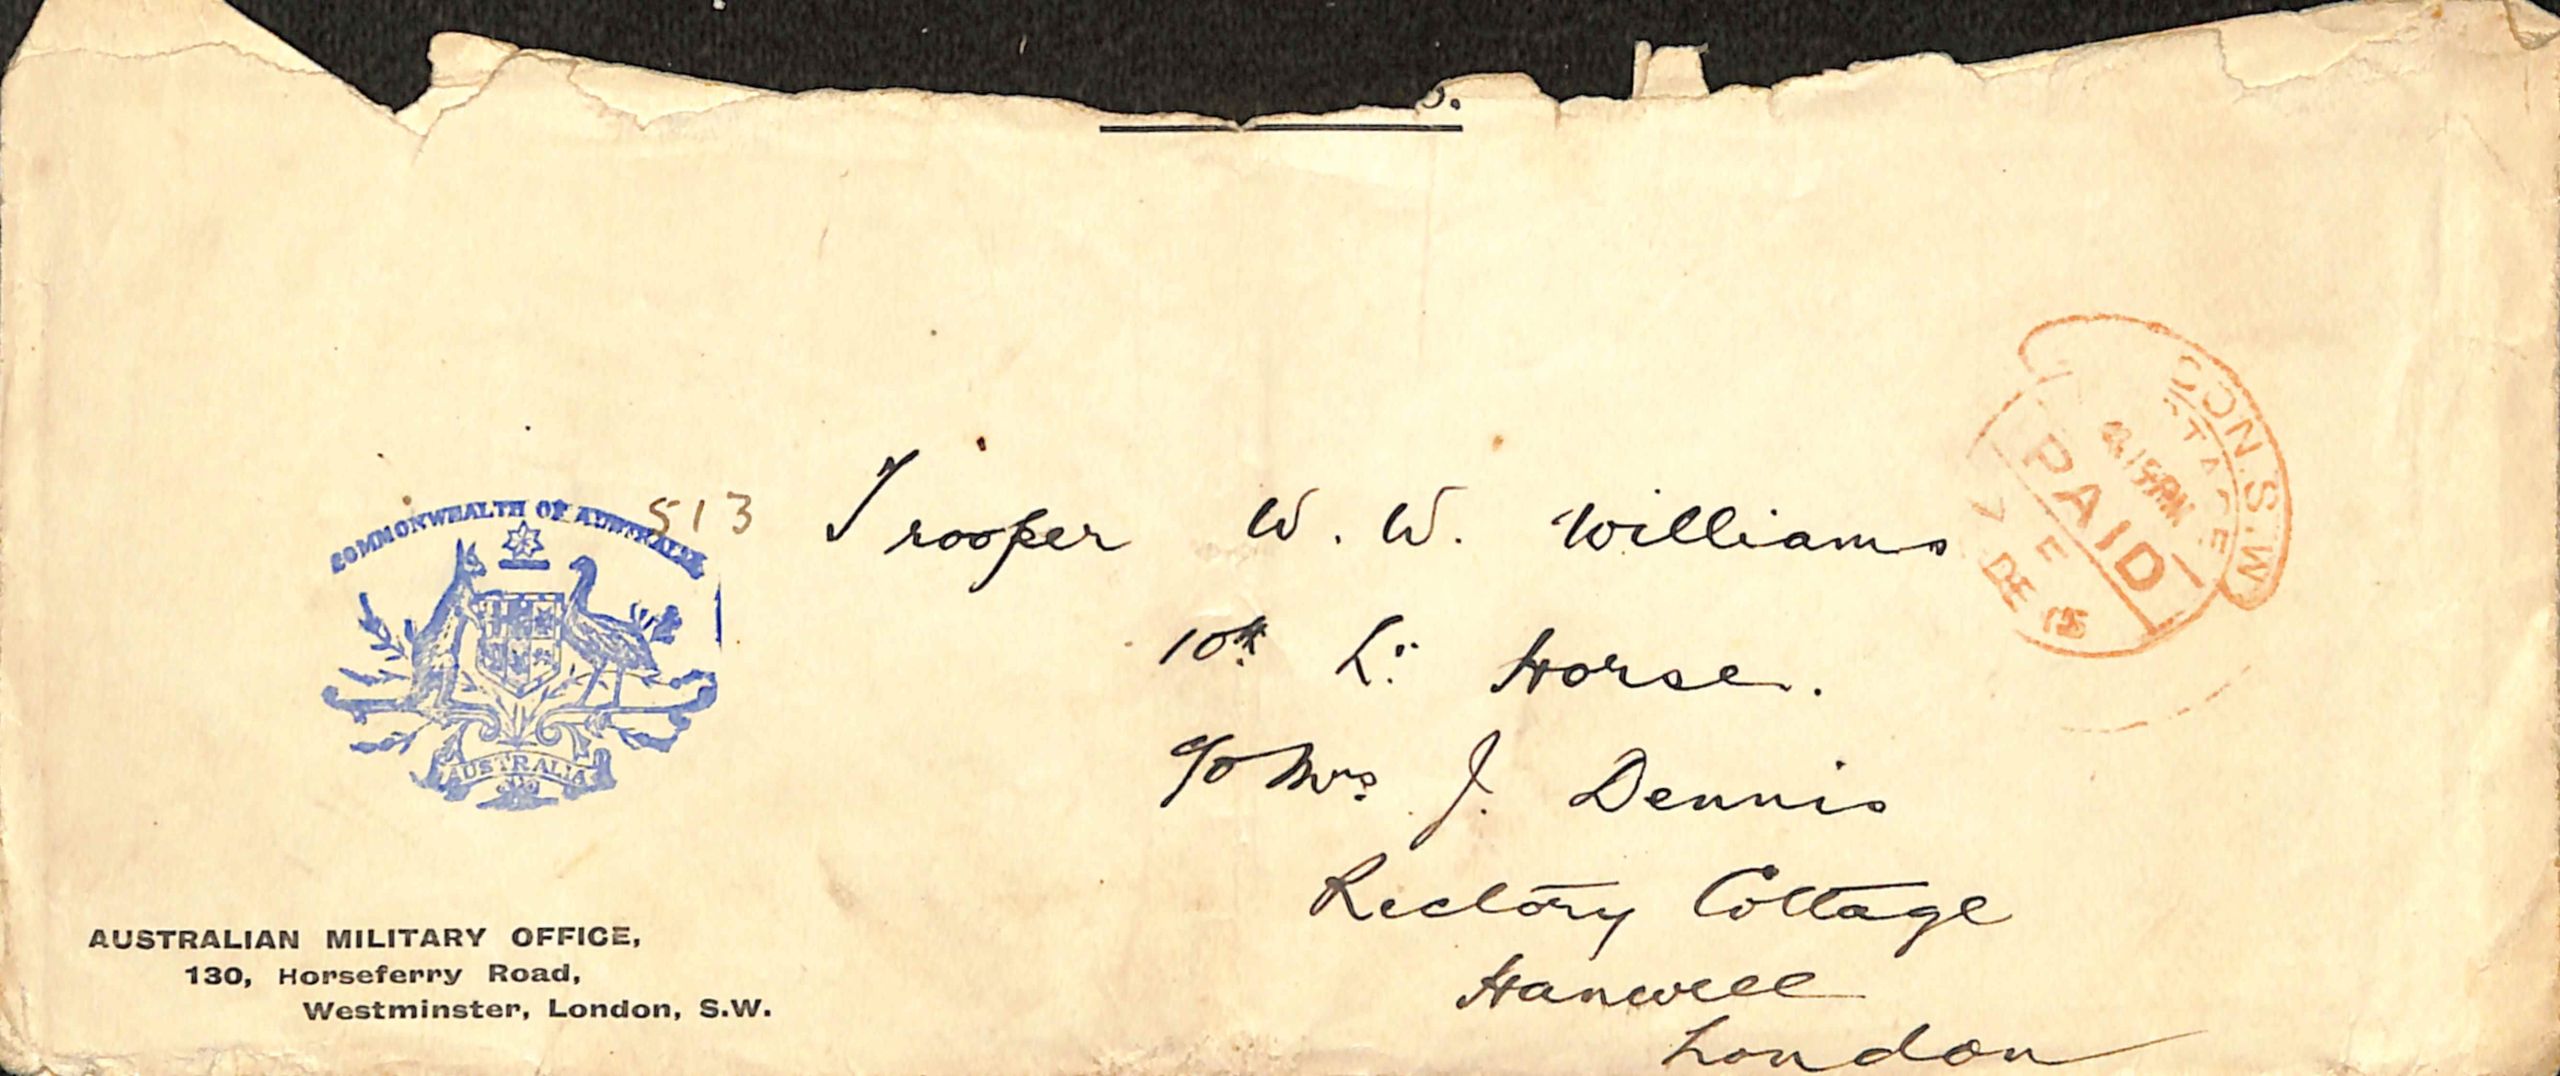 COMMONWEALTH OF AUSTRALIA
513
AUSTRALIA
Trooper W. W. Williams
10th Lt Horse.
c/o Mrs J. Dennis
Rectory Cottage
Hanwell
London
AUSTRALIAN MILITARY OFFICE,
130, Horseferry Road,
Westminster, London, S.W.
PAID
DE 15